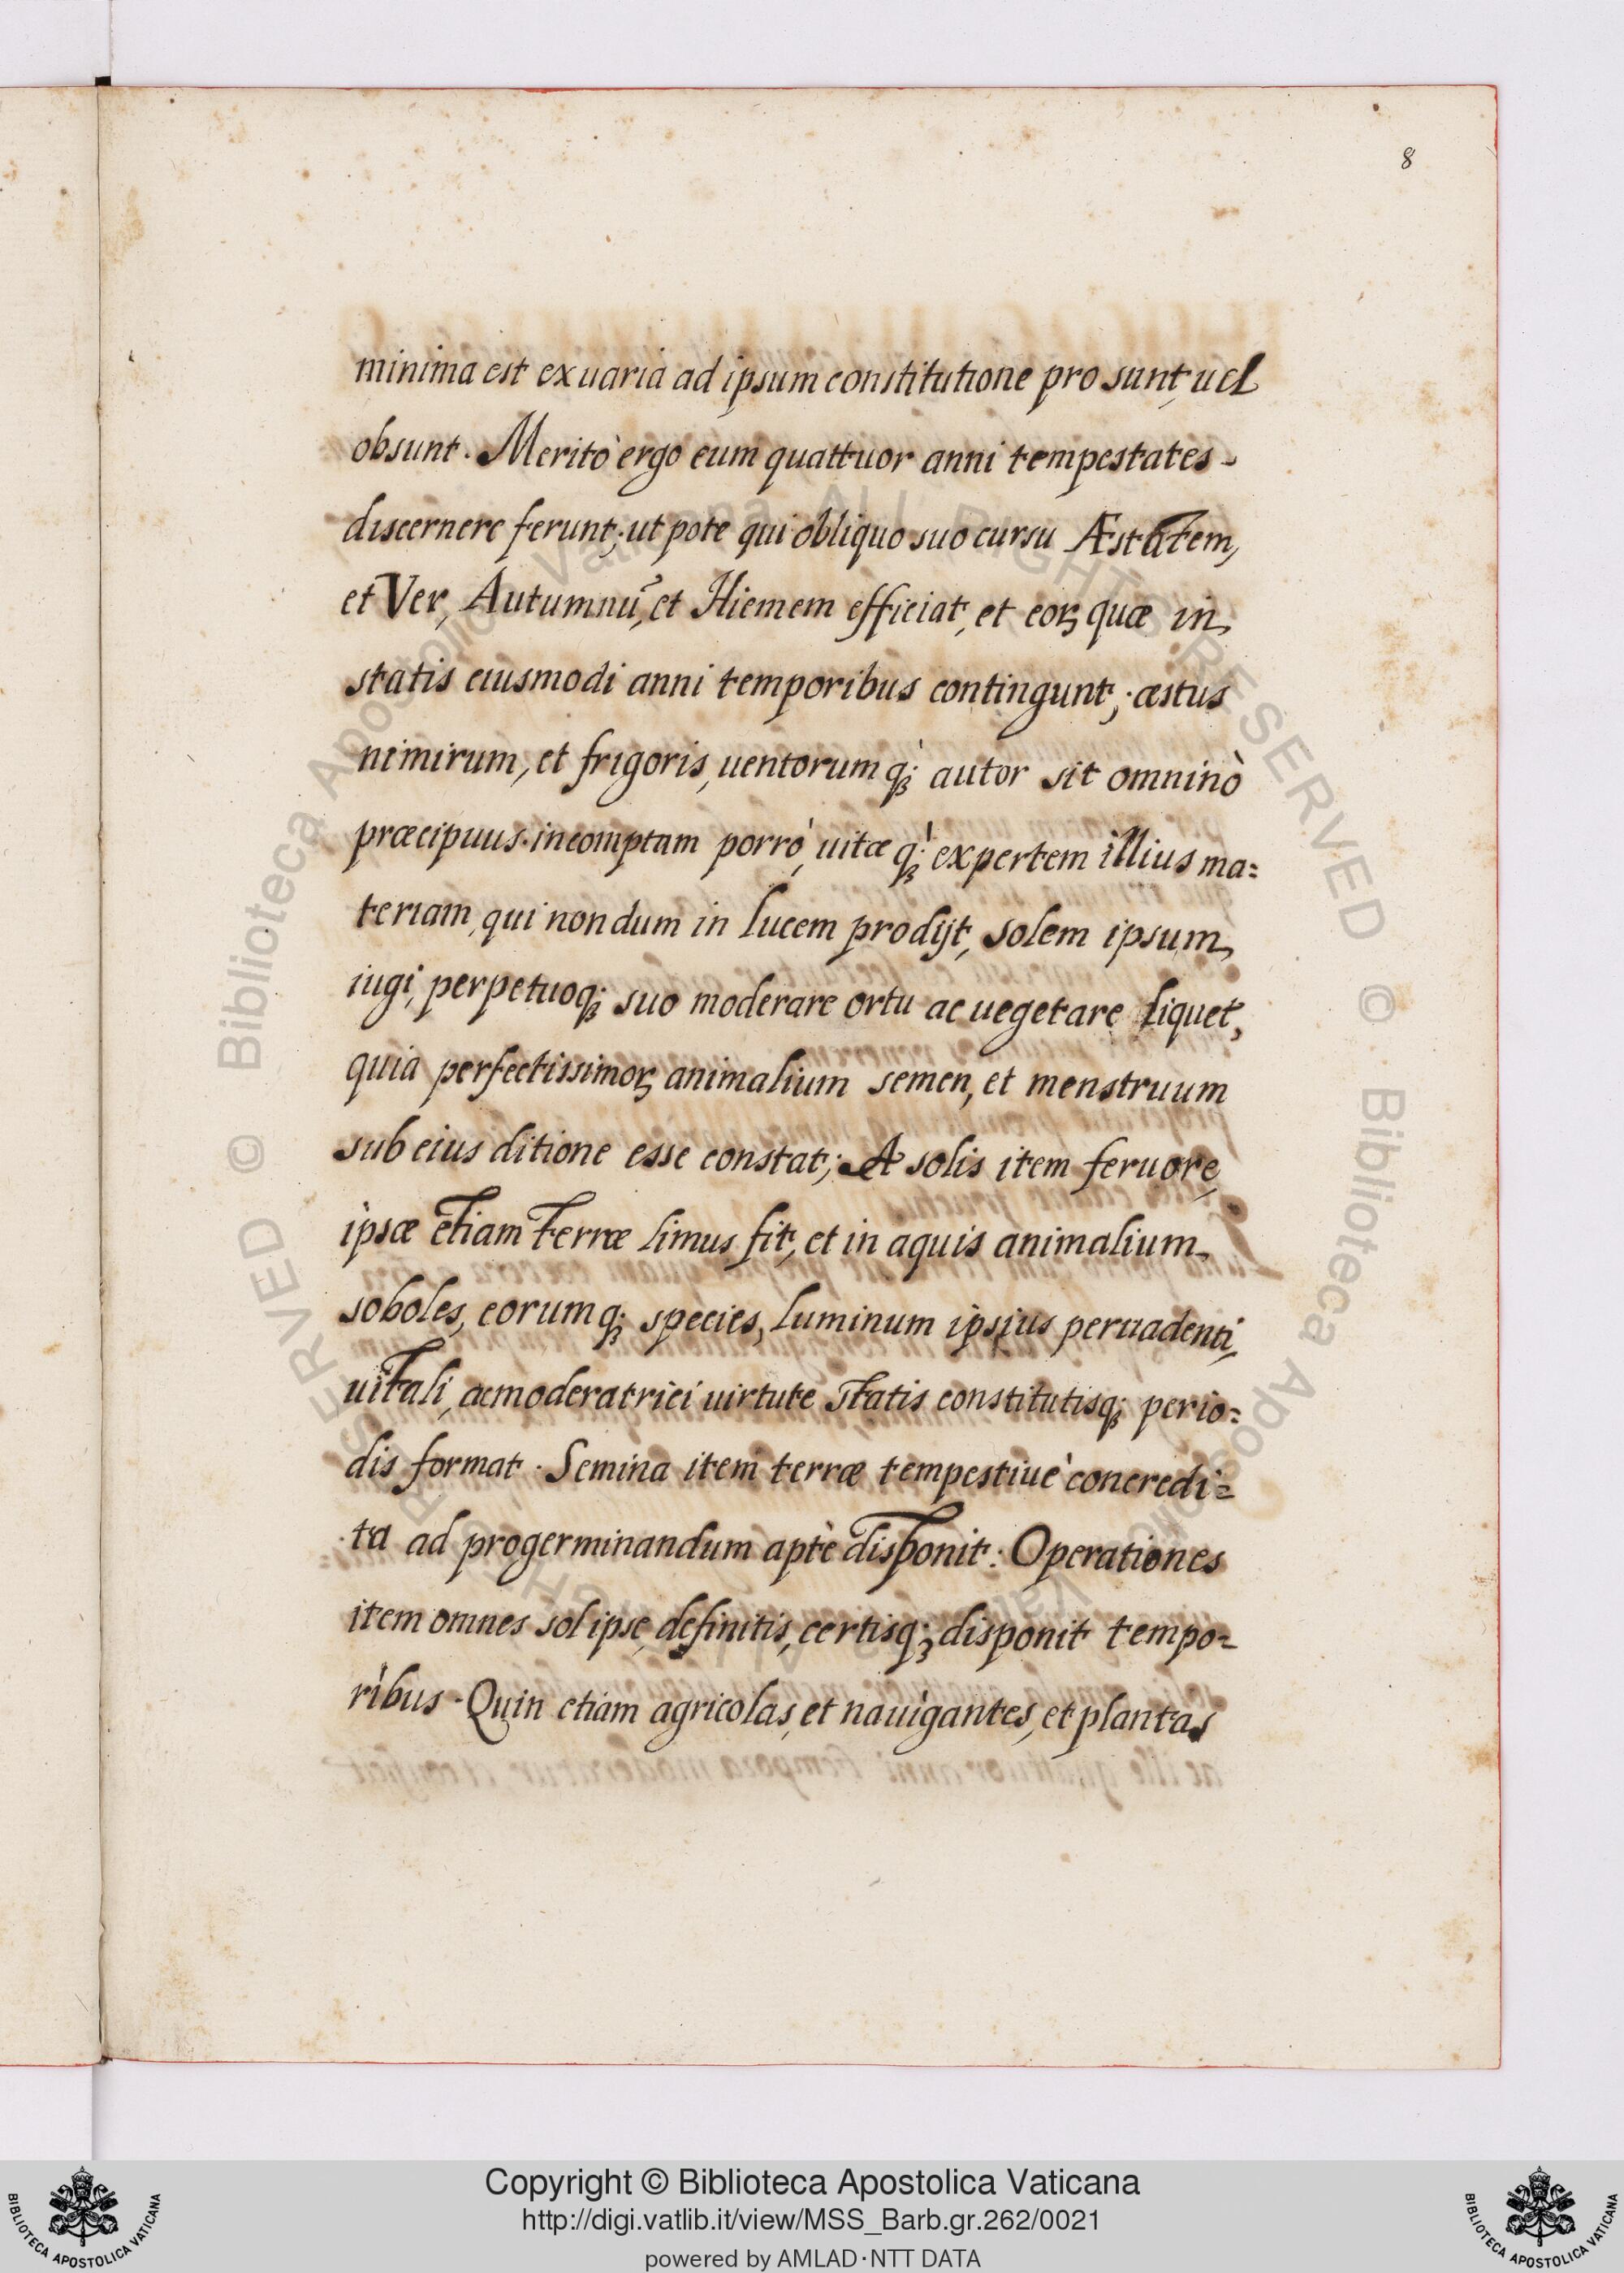 8
minima est ex uaria ad ipsum constitutione pro sunt, uel
obsunt. Meritò ergo eum quattuor anni tempestates
discernere ferunt; ut pote qui obliquo suo cursu Æstatem,
et Ver, Autumnũ, et Hiemem efficiat, et eoꝝ quæ in
statis eiusmodi anni temporibus contingunt; æstus
nimirum, et frigoris, uentorumq́ꝫ autor sit omninò
præcipuus. incomptam porrò, uitæ q́ꝫ expertem illius ma=
teriam, qui nondum in lucem prodijt, solem ipsum
iugi, perpetuoqꝫ suo moderare ortu ac uegetare liquet,
quia perfectissimoꝝ animalium semen, et menstruum
sub eius ditione esse constat; A solis item feruore,
ipsæ etiam terræ limus fit, et in aquis animalium
soboles, eorumqꝫ species, luminum ipsius peruadenti,
uitali, ac moderatrici uirtute statis constitutisqꝫ perio=
dis format. Semina item terræ tempestiuè concredi=
ta ad progerminandum aptè disponit: Operationes
item omnes sol ipse, definitis, certisqꝫ disponit tempo=
ribus. Quin etiam agricolas, et nauigantes, et plantas
Copyright © Biblioteca Apostolica Vaticana
http://digi.vatlib.it/view/MSS_Barb.gr.262/0021
powered by AMLAD·NTT DATA
BIBLIOTECA APOSTOLICA VATICANA
BIBLIOTECA APOSTOLICA VATICANA